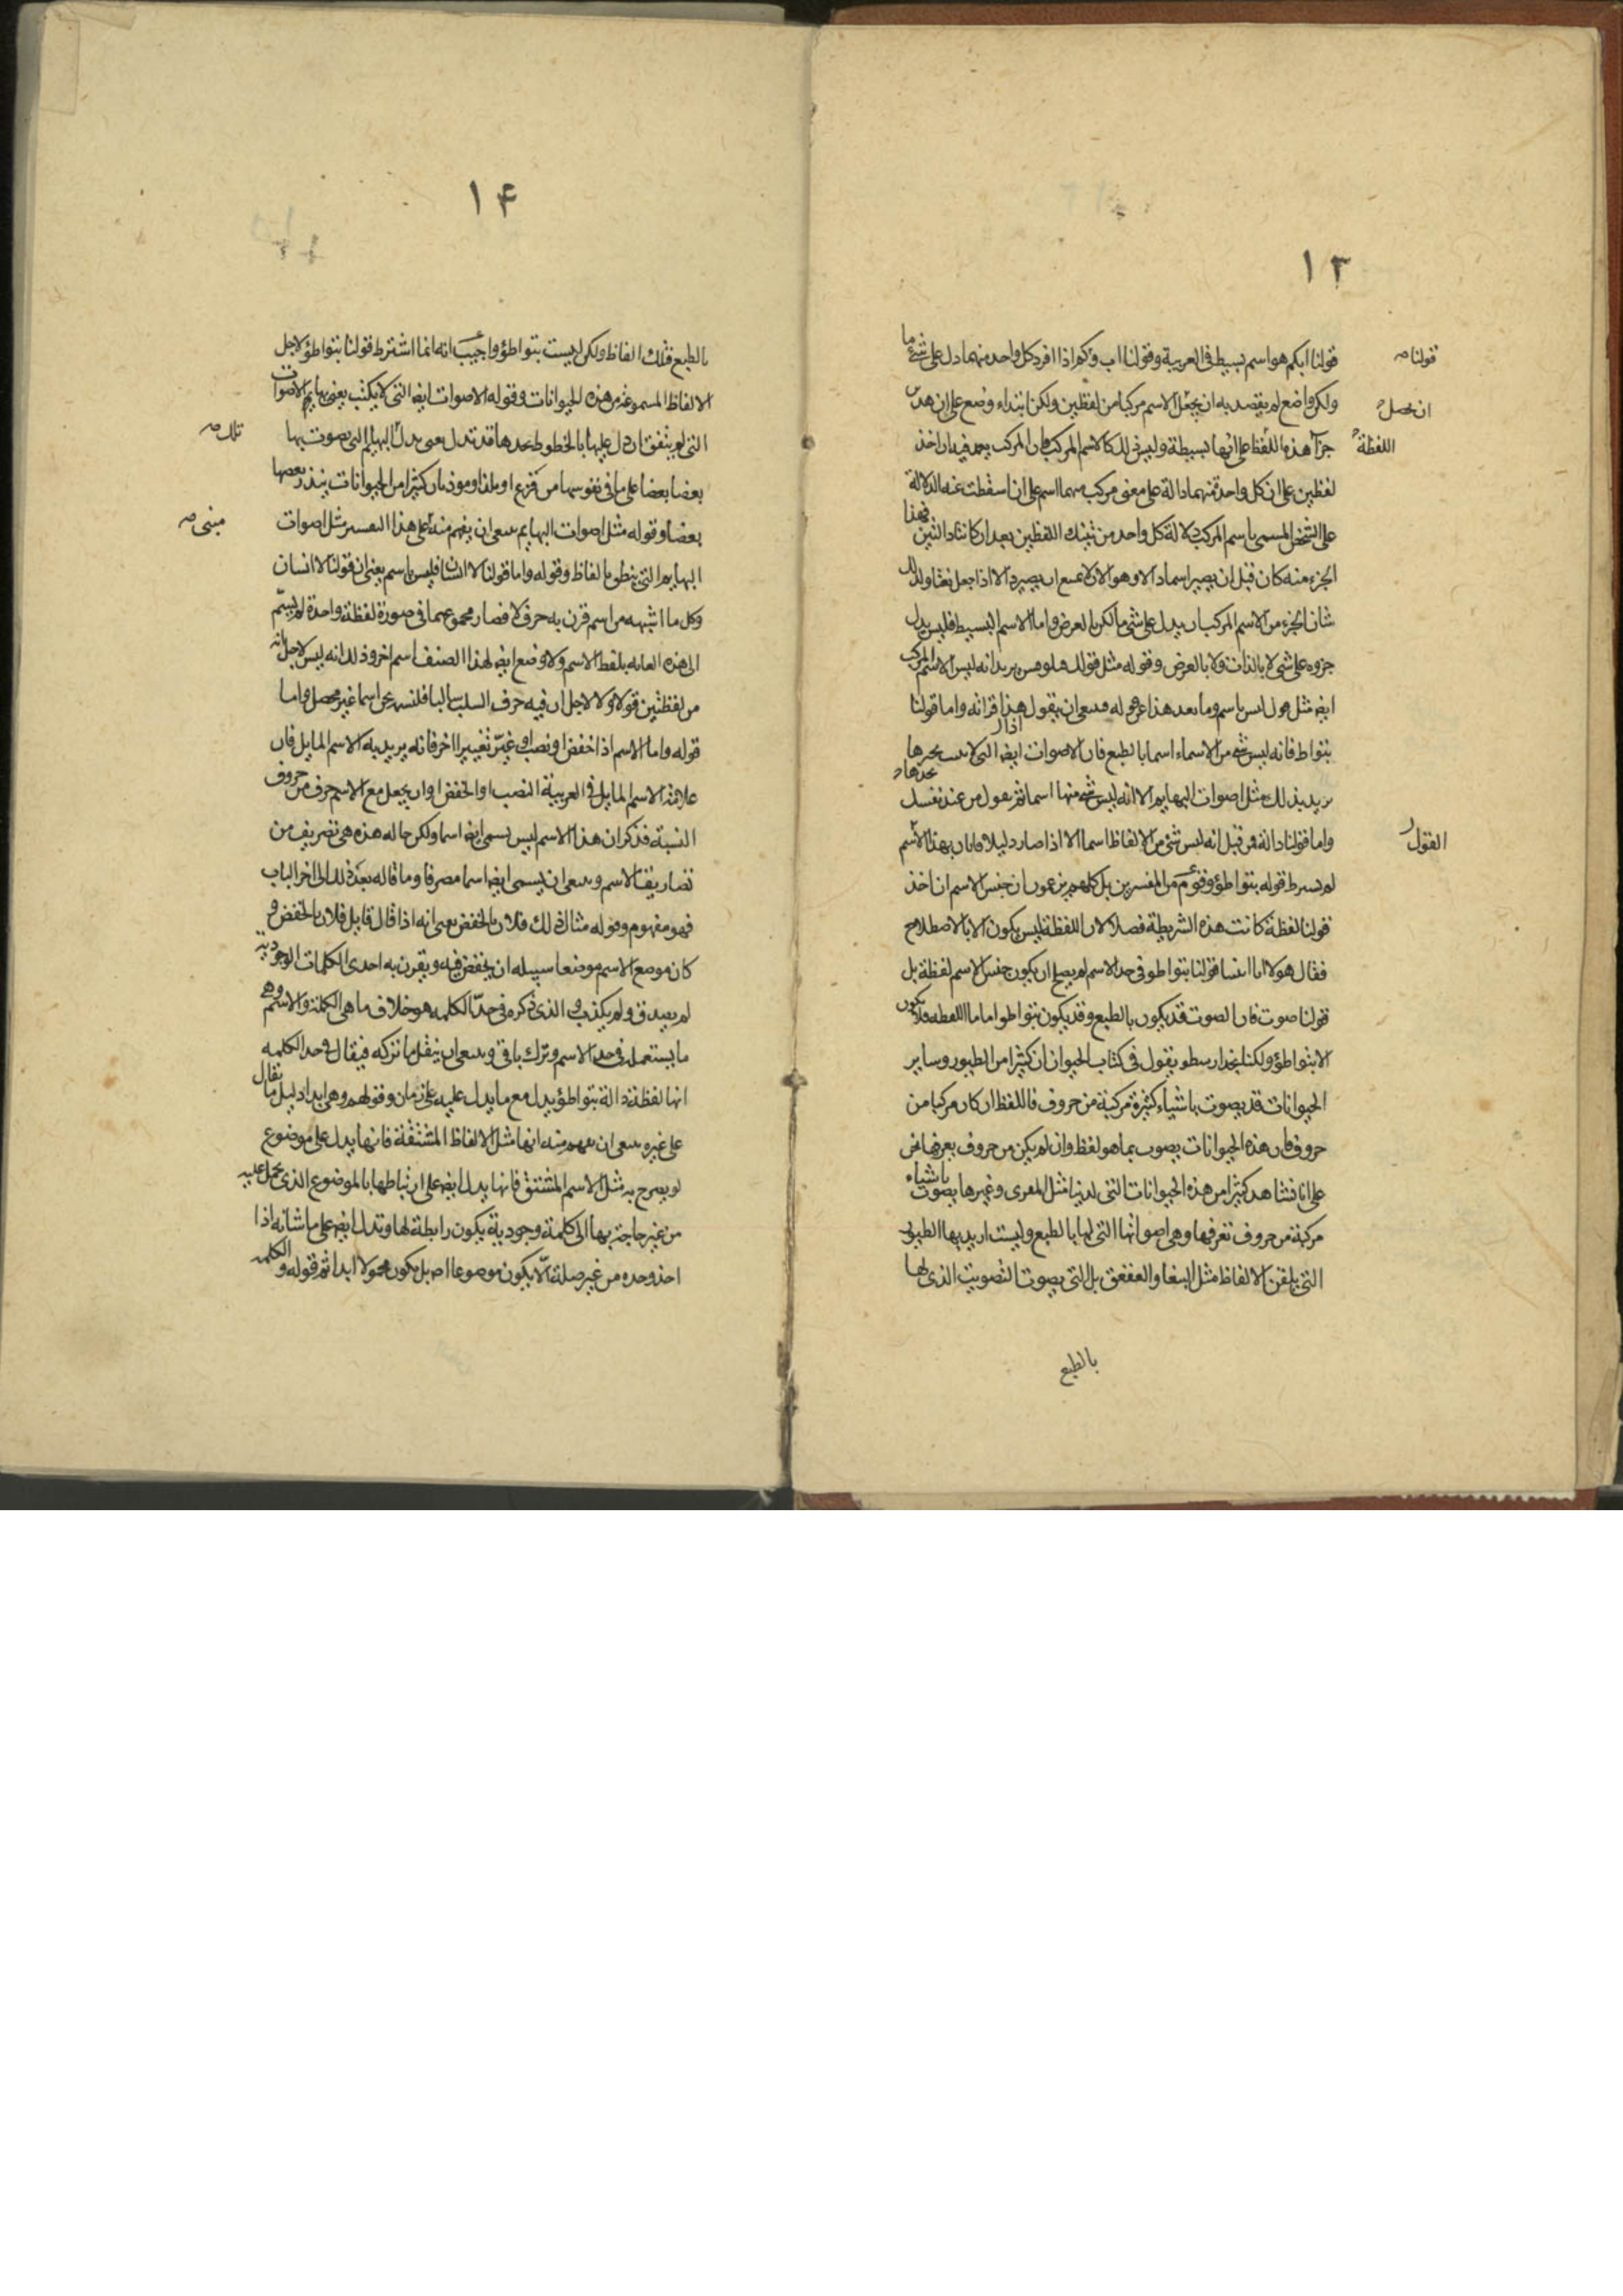 ١٣
قولنا ابكم هو اسم بسيط فى العربية وقولنا اب وكم اذا افرد كل واحد منهما دل على شئ ما
قولنا
ولكن واضع لم يقصد به ان يجعل الاسم مركبا من لفظين ولكن ابتداء وضع على ان
ان يحصل
جزآ هذه اللفظ على انها بسيطة وليس ذلك كالاسم المركب فان المركب اخذ
اللفظة
لفظين على ان كل واحدة منهما دالة على معنى مركب اسم على ان اسقطت عنه الدلالة
على الشخص المسمى باسم المركب دلالة كل واحد من تينك اللفظين بعد ان كانتا دالتين فهذا
الجزء منه كان قبل ان يصير اسما دالا وهو الان الا اذا جعل
شان الجزء من الاسم المركب ان يدل على شئ ما لكن بالعرض واما الاسم البسيط فليس يدل
جزوه على شئ لا بالذات ولا بالعرض وقوله مثل قولك يريد انه ليس الاسم المركب
ايض مثل باسم وما بعد هذا ان يقول هذا قرانه واما قولنا
بتواط فانه ليس شئ من الاسماء اسما بالطبع فان الاصوات ايض التى لا
يريد بذلك مثل اصوات البهايم الا انه ليس شئ منها اسما ثم يقول من عند نفسك
واما قولنا دالة فمن قبل انه ليس شئ من الالفاظ اسما الا اذا صار دليلا بهذا الاسم
القول
قوله بتواطؤ وقوم من المفسرين بل كلهم يزعمون ان جنس الاسم ان اخذ
قولنا لفظة كانت هذه الشريطة فصلا لان اللفظة ليس يكون الا بالاصطلاح
فقال هولا اما قولنا بتواطو فى حد الاسم لم يصلح ان يكون جنس الاسم لفظة بل
قولنا صوت فان الصوت قد يكون بالطبع وقد يكون بتواطو اما اللفظه فلا يكون
الا بتواطؤ ولكنا نجد ارسطو يقول فى كتاب الحيوان ان كثيرا من الطيور وساير
الحيوانات قد يصوت باشياء كثيرة مركبة من حروف فاللفظ ان كان مركبا من
حروف فان هذه الحيوانات يصوت بما هو لفظ وان لم يكن من حروف نحن
على انا نشاهد كثيرا من هذه الحيوانات التى لدينا مثل القمرى وغيرها يصوت باشياء
مركبة من حروف نعرفها وهى اصواتها التى لها بالطبع وليست اريد بها الطيور
التى يلقن الالفاظ مثل الببغا والعقعق بل التى يصوت التصويت الذى لها
بالطبع
١۴
بالطبع فتلك الفاظ ولكن ليست بتواطؤ واجيب انه انما اشترط قولنا بتواطؤ لاجل
الالفاظ المسموعة من هذه الحيوانات وقوله الاصوات ايض التى لا يكتب يعنى بها الاصوات
التى لم يتفق ان دل عليها بالخطوط قد تدل يعنى يدل البهايم التى يصوت بها
تلك
بعضا بعضا على ما فى نفوسها من فزع او ملذ او موذ فان كثيرا من الحيوانات ينذر بعضها
بعضا وقوله مثل اصوات البهايم ان يفهم منه على هذا التفسير مثل اصوات
مبنى
البهايم التى ينطق بالفاظ وقوله واما قولنا لا انسان فليس باسم يعنى ان قولنا لا انسان
وكل ما اشبهه من اسم قرن به حرف لا فصار مجموعهما فى صورة لفظة واحدة لم يسم
الى هذه الغايه بلفظ الاسم ولا وضع ايض لهذا الصنف اسم اخر وذلك انه ليس لاجل انه
من لفظتين قولا ولا لاجل ان فيه حرف السلب سالبا فلنسمه نحن اسما غير محصل واما
قوله واما الاسم اذا خفض او نصب او غير تغييرا اخر فانه يريد به الاسم المايل فان
علامة الاسم المايل فى العربية النصب او الخفض او ان يجعل مع الاسم حرف من حروف
النسبة فذكر ان هذا الاسم ليس يسمى ايض اسما ولكن حاله هذه هى تصريف من
تصاريف الاسم ان يسمى ايض اسما مصرفا وما قاله بعد ذلك الى اخر الباب
فهو مفهوم وقوله مثال ذلك فلان بالخفض يعنى انه اذا قال قايل فلان بالخفض و
كان موضع الاسم موضعا سبيله ان يخفض فيه ويقرن به احدى الكلمات الوجودية
لم يصدق ولم يكذب و الذى ذكره فى حد الكلمه هو خلاف ما هى الكلمة والاسم وهى
ما يستعمله فى حد الاسم وترك باقى ان ينقل ما تركه فيقال فى حد الكلمه
انها لفظة دالة بتواطؤ يدل مع ما يدل عليه على زمان وقولهم وهى ابدا دليل ما يقال
على غيره ان يفهم منه انها مثل الالفاظ المشتقة فانها يدل على موضوع
لم يصرح به مثل الاسم المشتق فانها يدل ايض على ارتباطها بالموضوع الذى يحمل عليه
من غير حاجة بها الى كلمة وجودية يكون رابطة لها وتدل ايض على ما شانه اذا
اخذ وحده من غير صلة الا يكون موضوعا اص بل يكون محمولا ابدا ثم قوله والكلمه